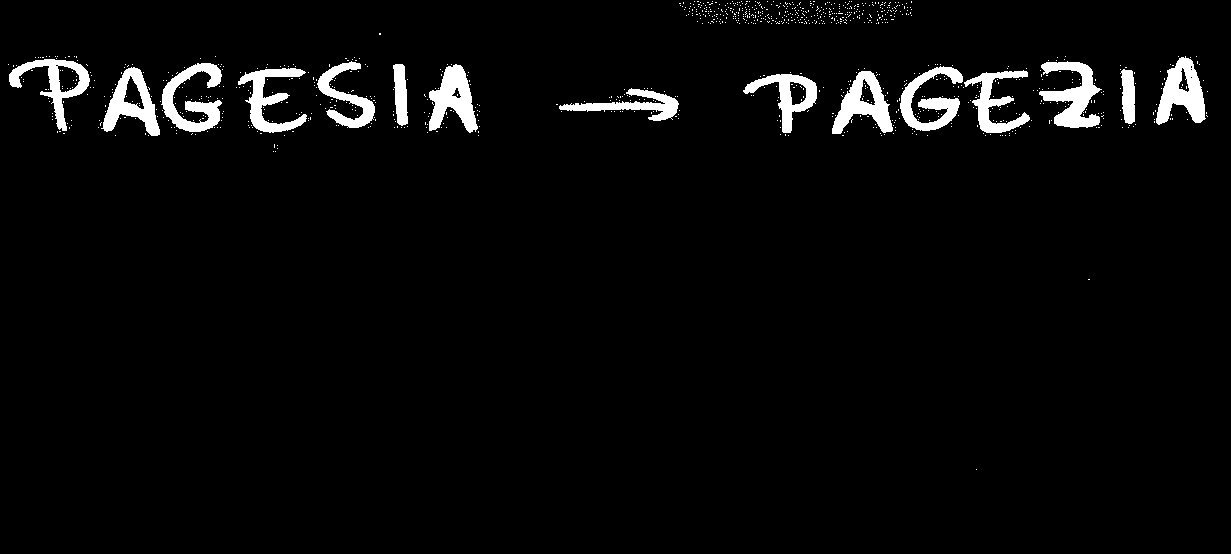 PAGESIA → PAGEZIA